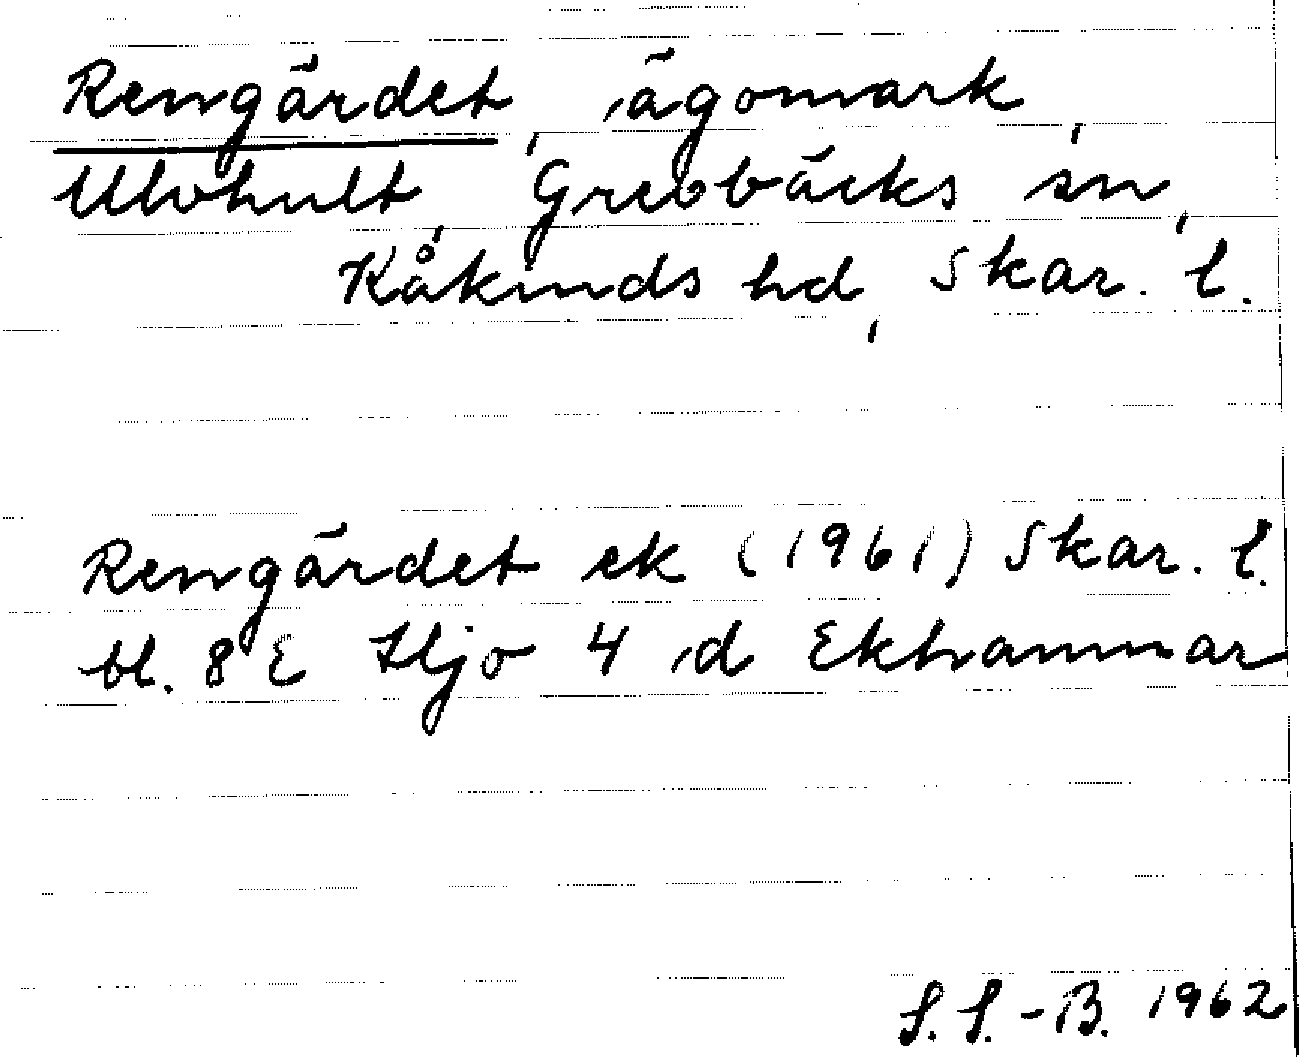 Rengärdet, ägomark,
Ulvhult, Grevbäcks sn,
Kåkinds hd, Skar. l.
Rengärdet ek (1961) Skar. l.
bl. 8 E Hjo 4 d Ekhammar
S. S.-B. 1962